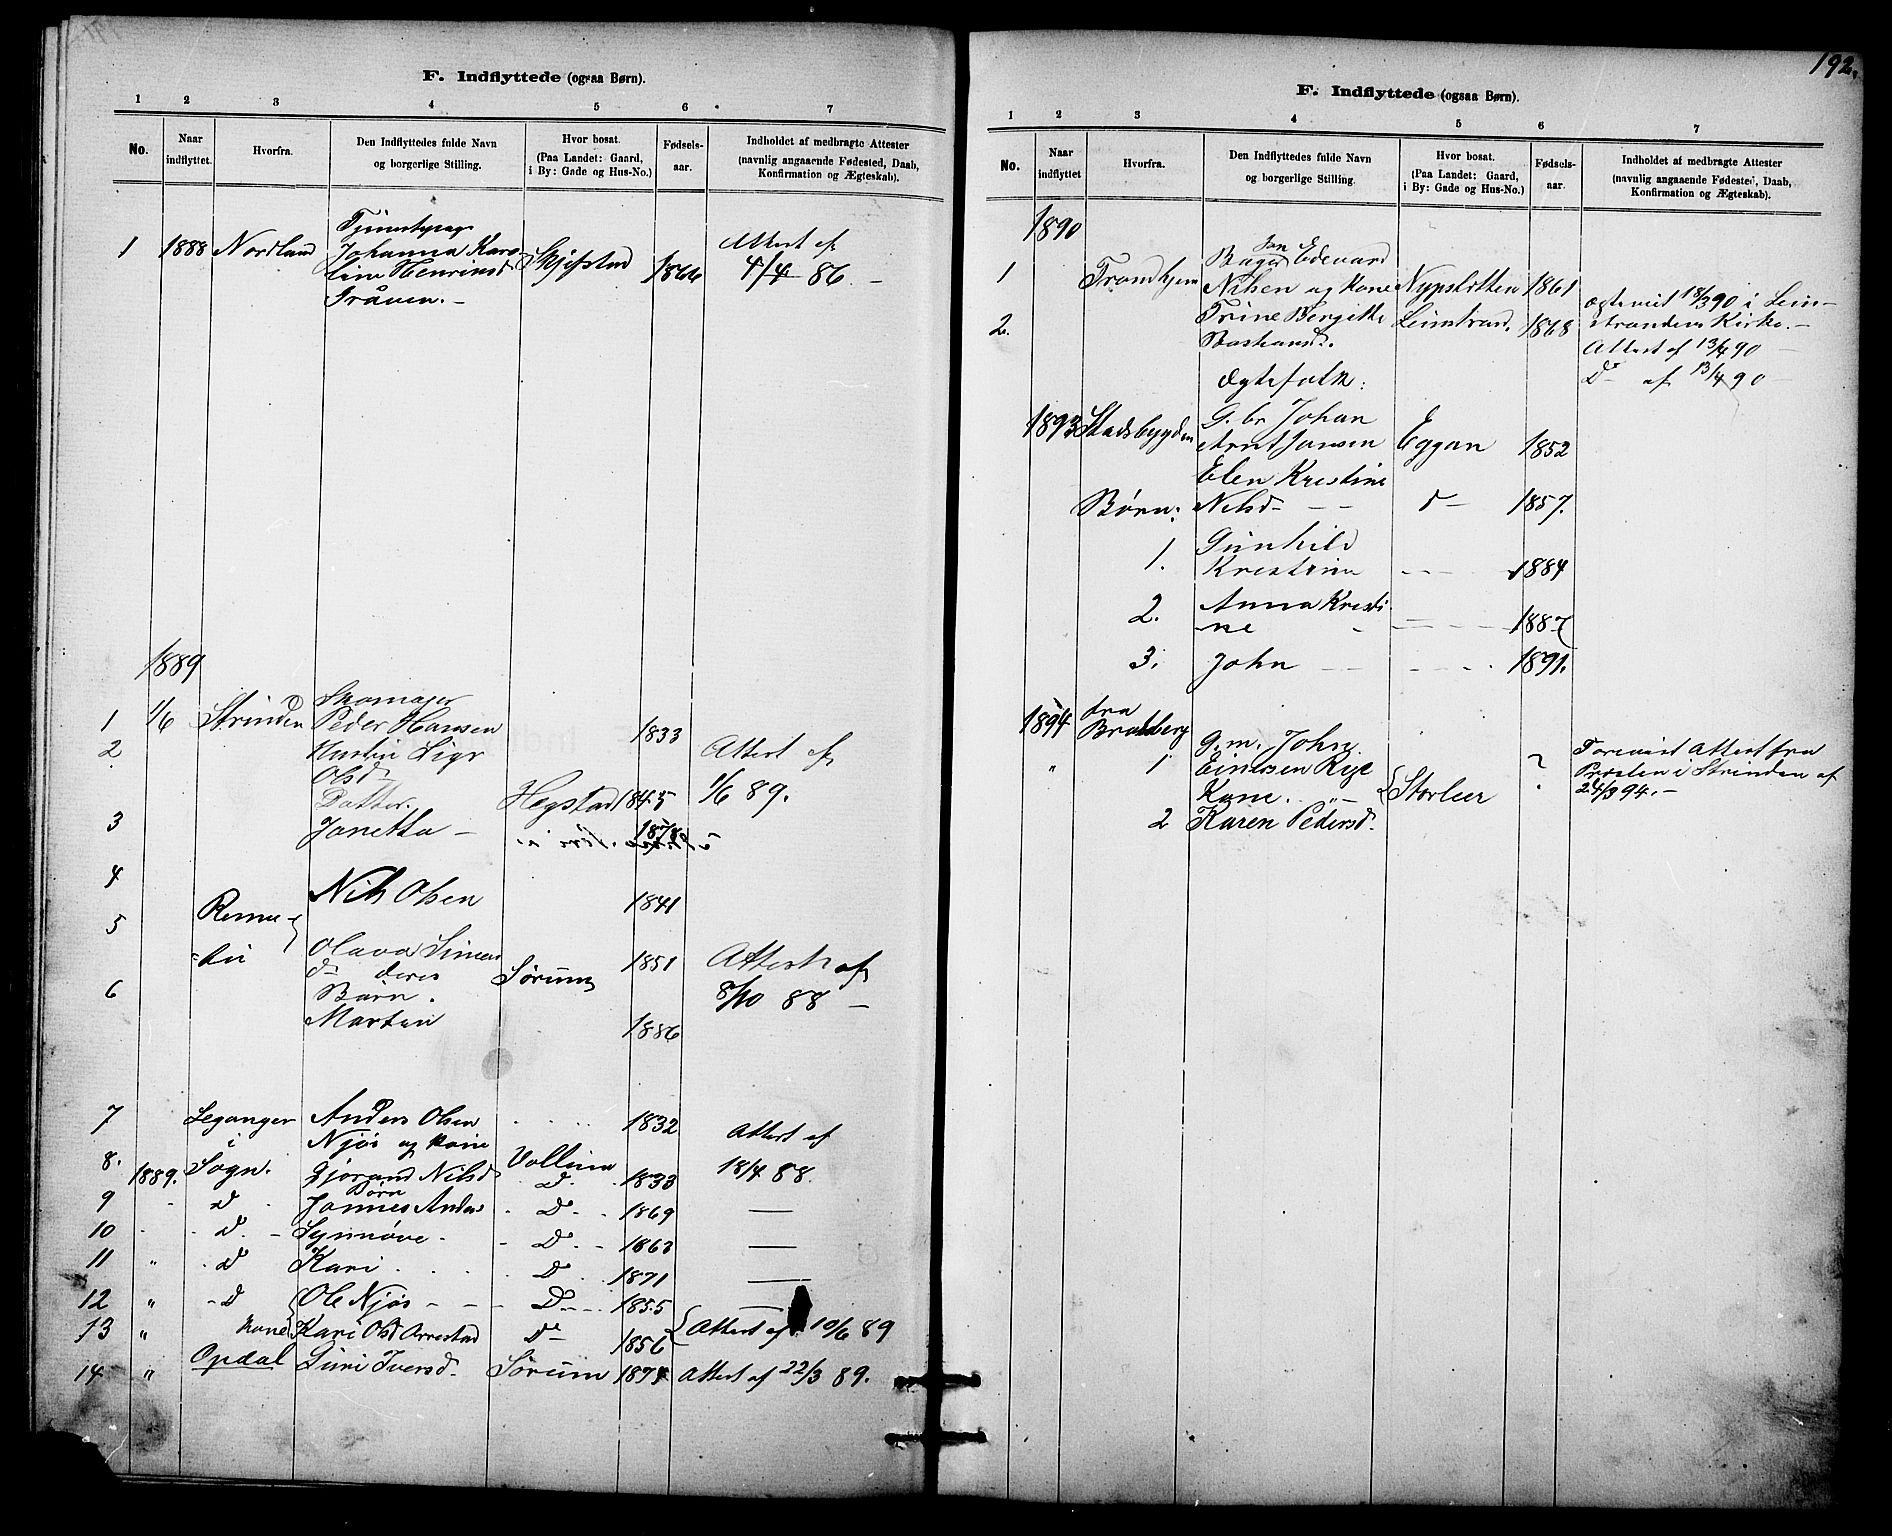 F. Indflyttede (ogsaa Børn).
1 2 3 4 5 6 7
No. Naar indflyttet. Hvorfra. Den Indflyttedes fulde Navn og borgerlige Stilling. Hvor bosat. (Paa Landet: Gaard, i By: Gade og Hus-No.) Fødsels-aar. Indholdet af medbragte Attester (navnlig angaaende Fødested, Daab, Konfirmation og Ægteskab).
Tjenestepige
1 1888 Nordland Johanna Karo- Skjefstad 1866 Attest af
line Henriksd 4/4 86. -
Gråven. -
1889
Skomager
1 1/6 Strinden Peder Hansen 1833
2 Olsd Attest af
Datter. Hegstad 1845 1/6 89.
3 Janetta - 1878
4 Nils Olsen 1841
5 Olava Simens 1851 Attest af
d- deres Sørum
6 Børn. 8/10 88 -
Morten 1886
7 Leganger Anders Olsen 1832 Attest af
i Njøs og Kone
8. 1889. Sogn. Gjorand Nilsd Vollum D. 1833 18/4 88.
Børn
9 D Jannes Anders D 1869 -
10 D. Synnøve. D. 1863 -
11 " D Kari D 1871 -
12 " D Ole Njøs - D 1855 -
13 " Kone Kari Olsd Arrestad Do 1856 Attest af 10/6 89
14 " Opdal Siri Iversd. Sørum 1874 Attest af 22/3 89.
192.
F. Indflyttede (ogsaa Børn).
1 2 3 4 5 6 7
No. Naar indflyttet Hvorfra. Den Indflyttedes fulde Navn og borgerlige Stilling. Hvor bosat. (Paa Landet: Gaard, i By: Gade og Hus-No.) Fødsels-aar. Indholdet af medbragte Attester (navnlig angaaende Fødested, Daab, Konfirmation og Ægteskab).
1890
Jon
Bager Edevard
1 Trondhjem Nilsen og Kone Nypsletten 1861 ægteviet 18/3 90 i Lein-
2. Trine Bergitte Leinstrand. 1868 strandens Kirke. -
Attest af 13/4 90 -
Ægtefolk: Do af 13/4 90 -
1893 Stadsbygden G.br Johan
Arnt Jansen Eggan 1852
Elen Kristine
Børn: Nilsd - - d- 1857.
Gunhild
1. Kristine - - - 1884
2. Anna Kristi-
ne - - - 1887
3. John - - - 1891.
1894 fra
Bratsberg g.m. John Forevist Attest fra
" 1 Einersen Rye ? Presten i Strinden af
Kone. " - Storleer 24/3 94. -
2 Karen Pedersd.